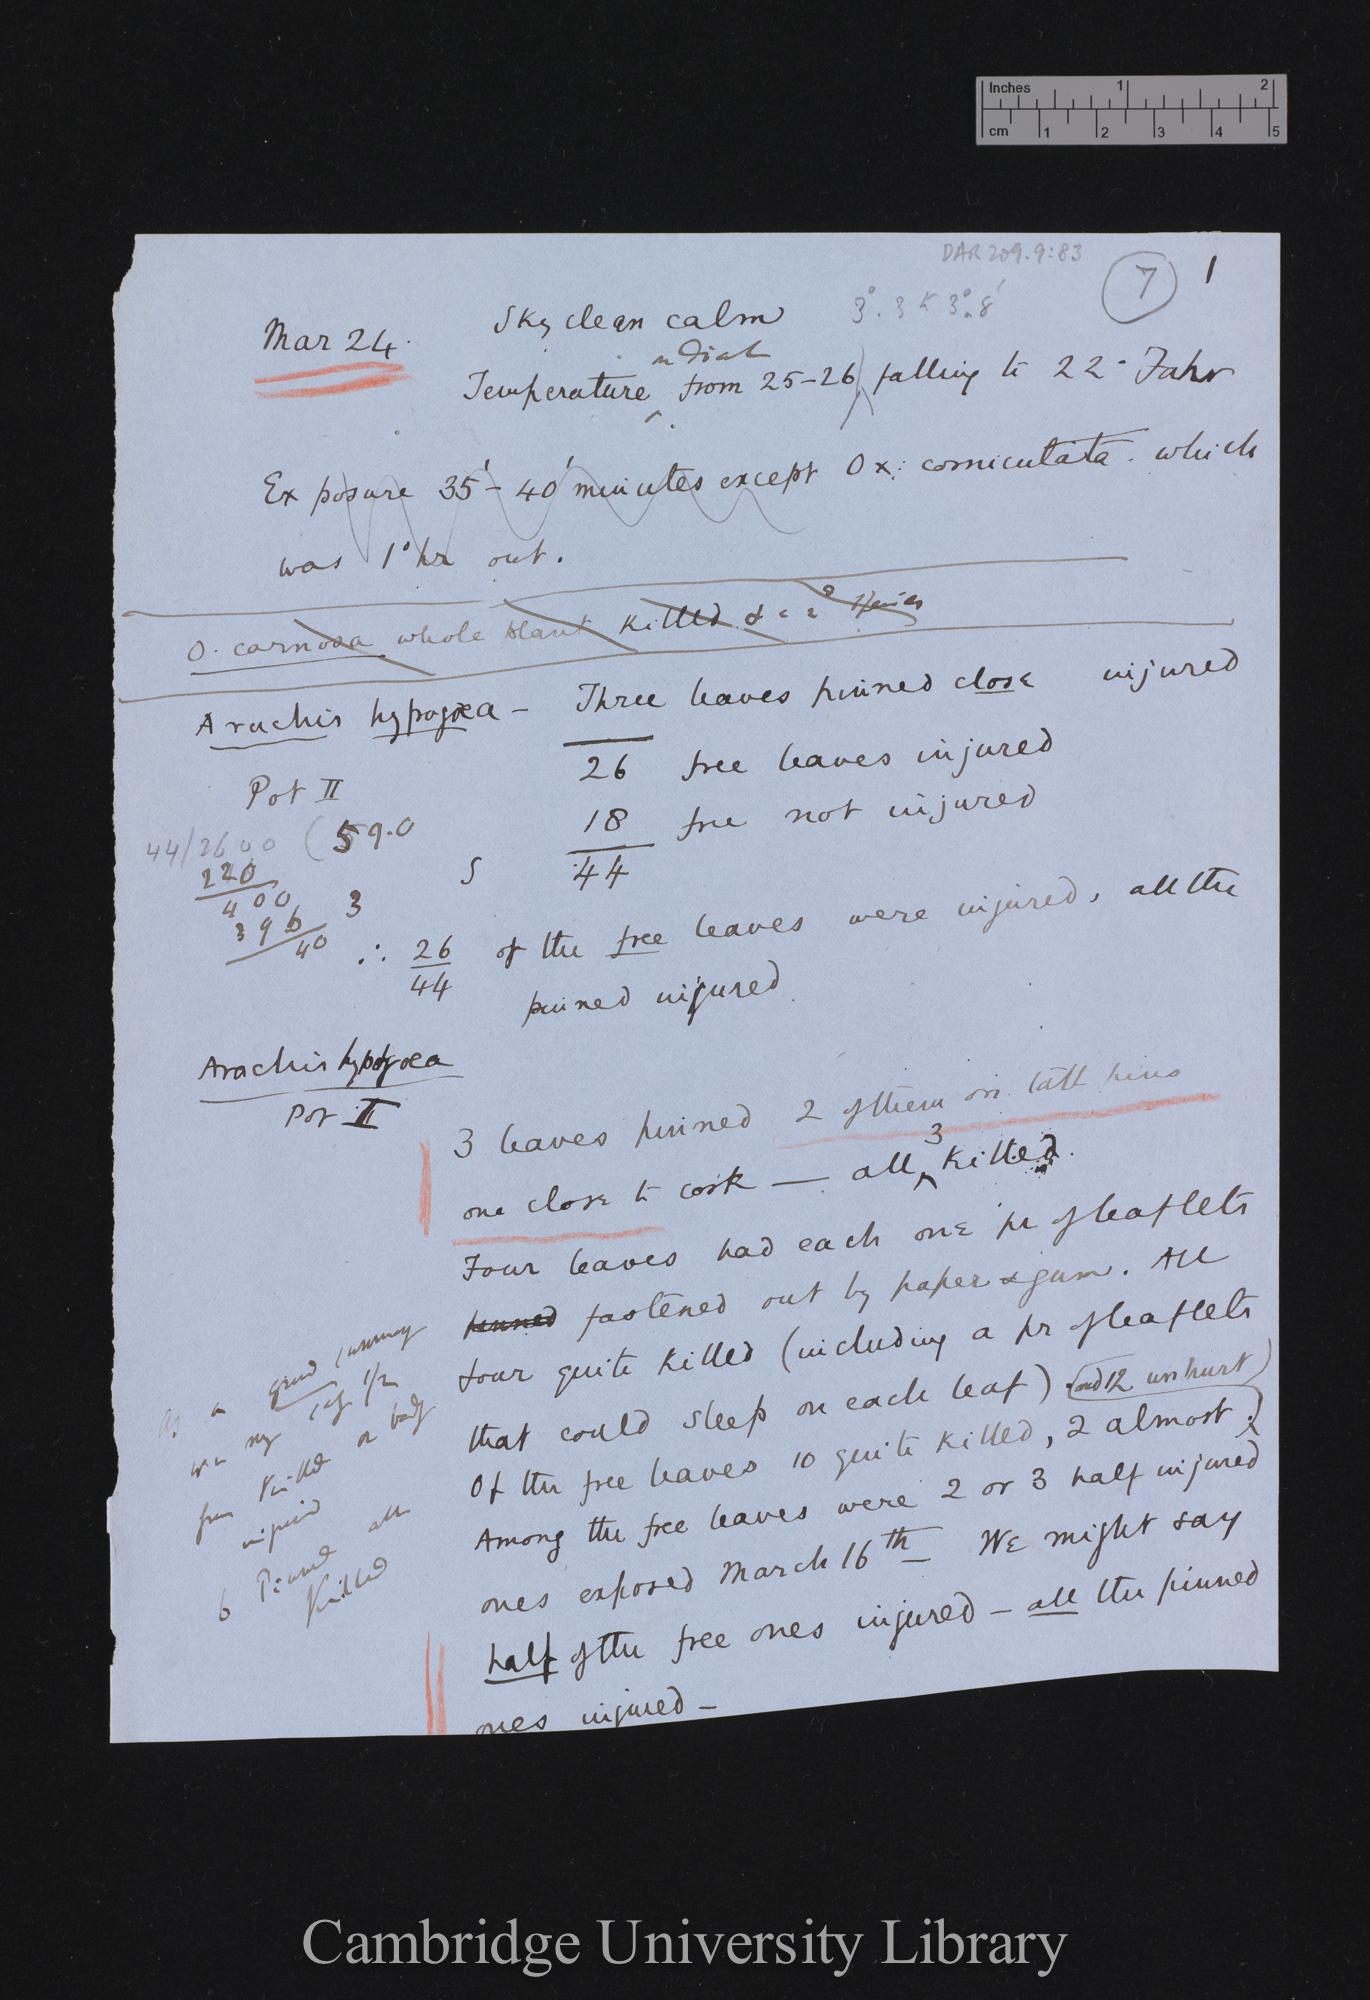 Inches 1 2
cm 1 2 3 4 5
DAR 209.9:83
7 1
Mar 24. Sky clean calm 3°.3 3°.8
Temperature from 25–26 falling to 22° Fahr
Exposure 35'–40' minutes except Ox: corniculata. which
was 1° hr out.
O. carnosa whole plant killed
Arachis hypogœa – Three leaves pinned close injured
Pot II 26 free leaves injured
44/2600 (59.0 18 free not injured
220 44
400
396 3
40
∴ 26/44 of the free leaves were injured, all the
pinned injured
Arachis hypogœa
Pot II
3 leaves pinned 2 of them on tall pins
one close to cork — all 3 killed.
Four leaves had each one pr of leaflets
pinned fastened out by paper & gum. All
four quite killed (including a pr of leaflets
that could sleep on each leaf) and 12 unhurt
Of the free leaves 10 quite killed, 2 almost.
Among the free leaves were 2 or 3 half injured
ones exposed March 16th – We might say
half of the free ones injured – all the pinned
ones injured –
As a grand summary
we may say 1/2
free killed or badly
injured
6 Pinned all
killed
Cambridge University Library